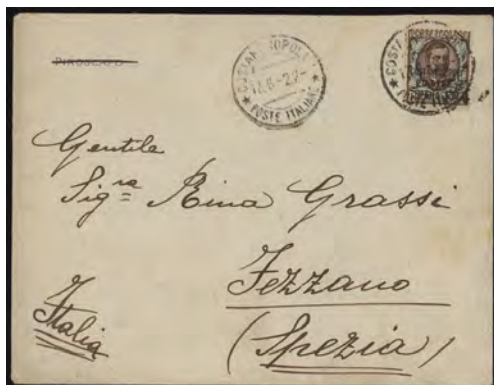 PIROSCAFO
COSTANTINOPOLI
POSTE ITALIANE
Gentile
Sigra Rina Grassi
Fezzano
(Spezia)
Italia